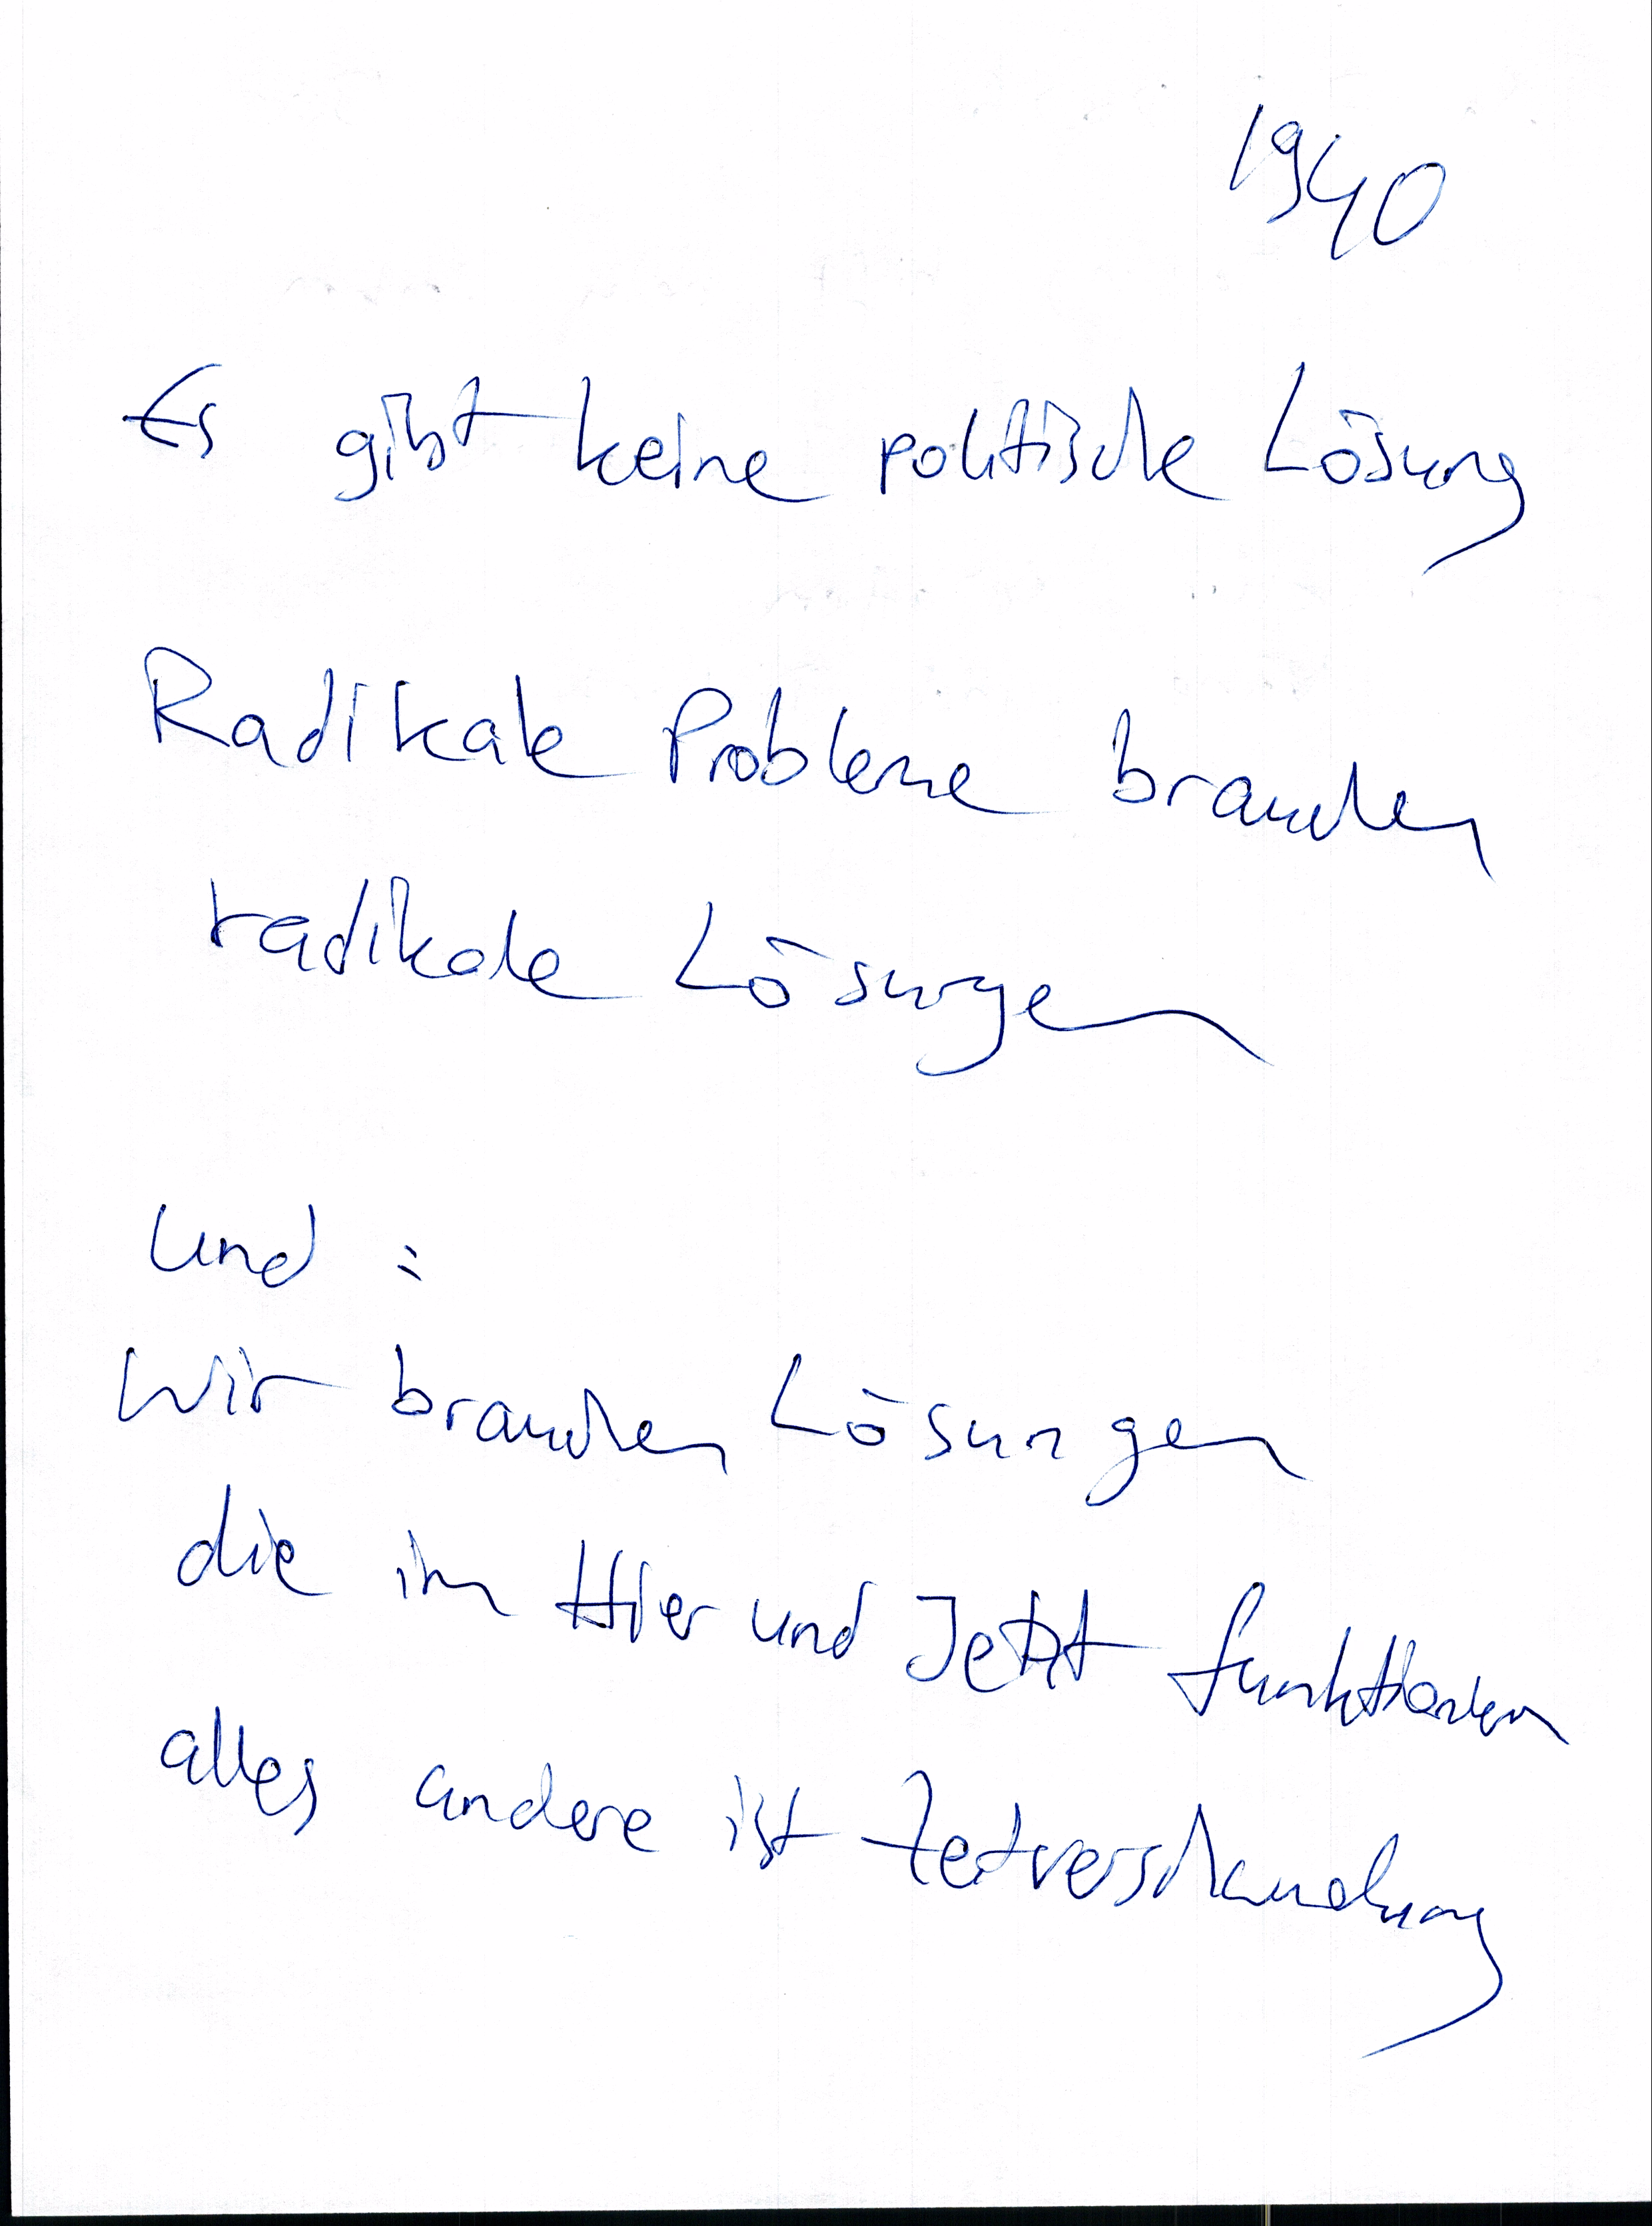 1940
Es gibt keine politische Lösung
Radikale Probleme brauchen
radikale Lösungen
und :
Wir brauchen Lösungen
die im Hier und Jetzt funktionieren
alles andere ist Zeitverschwendung